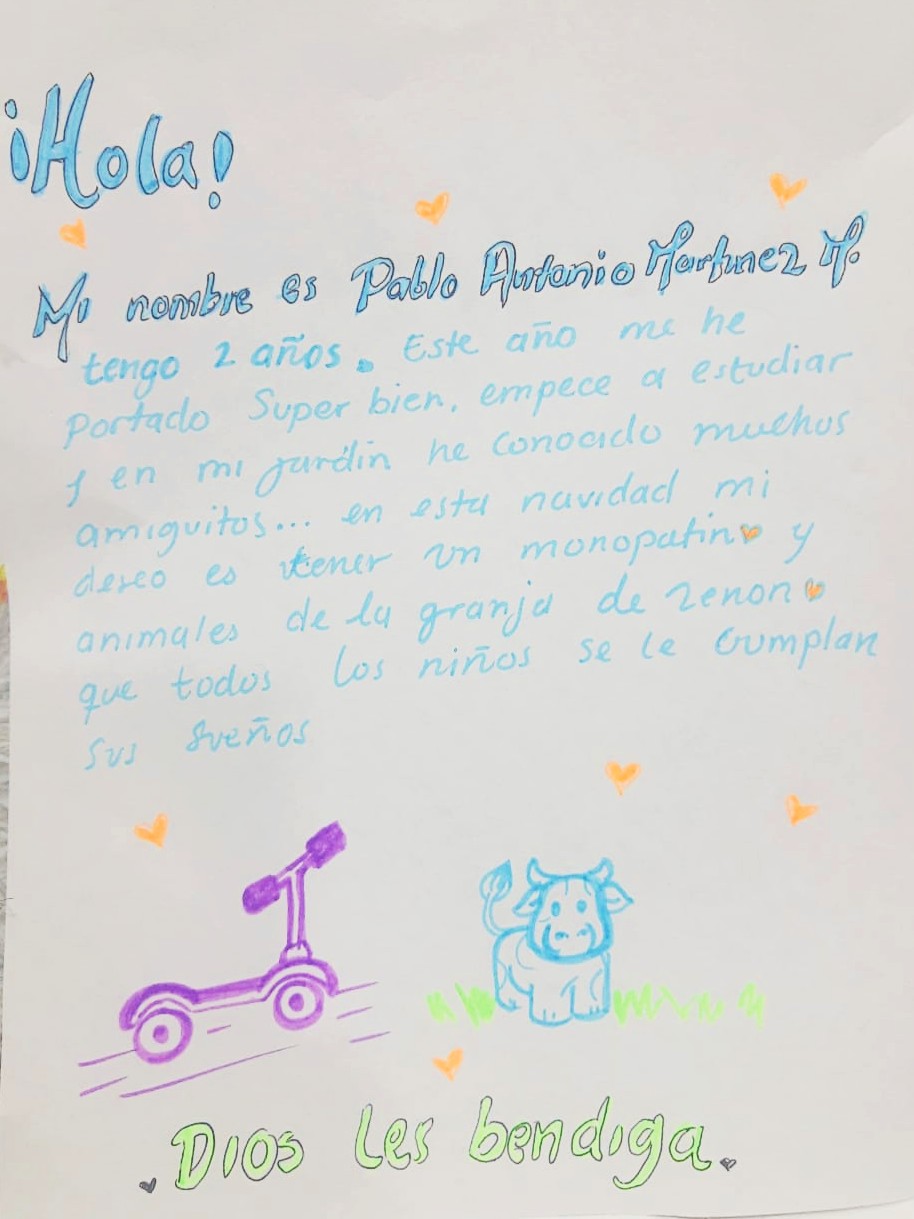 ¡Hola!
Mi nombre es Pablo Antonio Martinez M.
tengo 2 años. Este año me he
Portado Super bien, empece a estudiar
y en mi jardin he conocido muchos
amiguitos... en esta navidad mi
deseo es tener un monopatin y
animales de la granja de zenon
que todos los niños se le cumplan
sus sueños
Dios les bendiga.